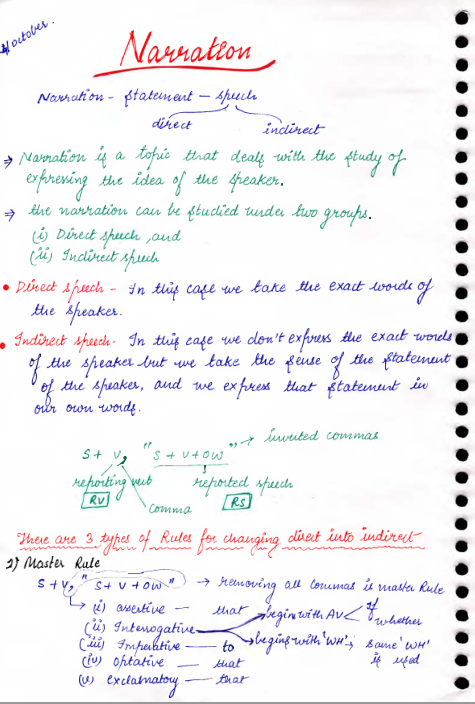 4 October.
Narration
Narration - Statement - speech
direct
indirect
⇒ Narration is a topic that deals with the study of
expressing the idea of the speaker.
⇒ the narration can be studied under two groups.
(i) Direct speech, and
(ii) Indirect speech
• Direct speech - In this case we take the exact words of
the speaker.
• Indirect speech - In this case we don't express the exact words
of the speaker but we take the sense of the statement
of the speaker, and we express that statement in
our own words.
S + V, " S + V + OW " → inverted commas
reporting verb
reported speech
RV
comma
RS
There are 3 types of Rules for changing direct into indirect
1) Master Rule
S + V, " S + V + OW " → removing all commas is master Rule
(i) assertive — that
begin with AV < if
whether
(ii) Interrogative
(iii) Imperative — to
begins with 'WH' → same 'WH'
is used
(iv) optative — that
(v) exclamatory — that